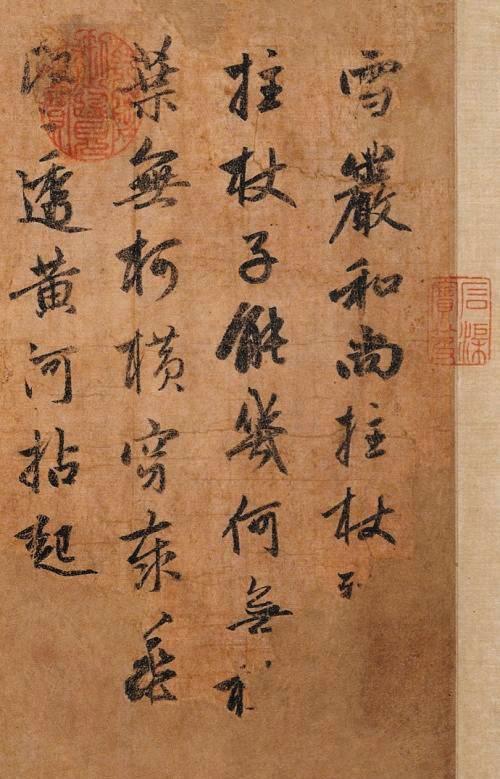 雪巖和尚拄杖
拄杖子能幾何無
葉無柯橫穿泰華
透黃河拈起